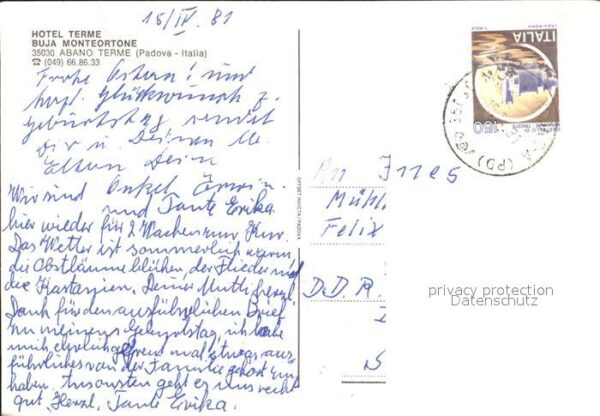 15/IV. 81
HOTEL TERME
BUJA MONTEORTONE
35030 ABANO TERME (Padova - Italia)
☎ (049) 66.86.33
Frohe Ostern! und
herzl. Glückwunsch z.
Geburtstag sendet
Dir u. Deinen
Eltern Dein
Onkel Erwin
und Tante Erika
Wir sind
hier wieder für 2 Wochen zur Kur.
Das Wetter ist sommerlich warm,
die Obstbäume blühen, der Flieder und
die Kastanien. Deiner Mutti herzl.
Dank für den ausführlichen Brief
zu meinem Geburtstag, ich habe
mich ehrlich gefreut mal etwas aus-
führliches von der Familie gehört zu
haben. Ansonsten geht es uns recht
gut. Herzl. Tante Erika.
OFFSET INVICTA / PADOVA
ITALIA
150
(PD)
An Ines
Mühl
Felix
D.D.R.
privacy protection
Datenschutz